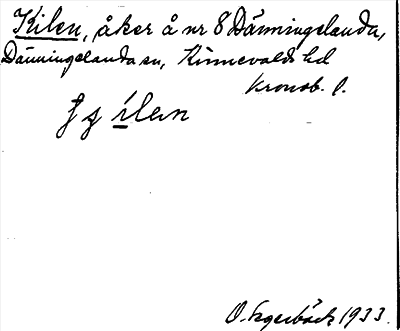 Kilen, åker å nr 8 Dänningelanda,
Dänningelanda sn, Kinnevalds hd
Kronob. l.
ílen
O. Agerbäck 1933.